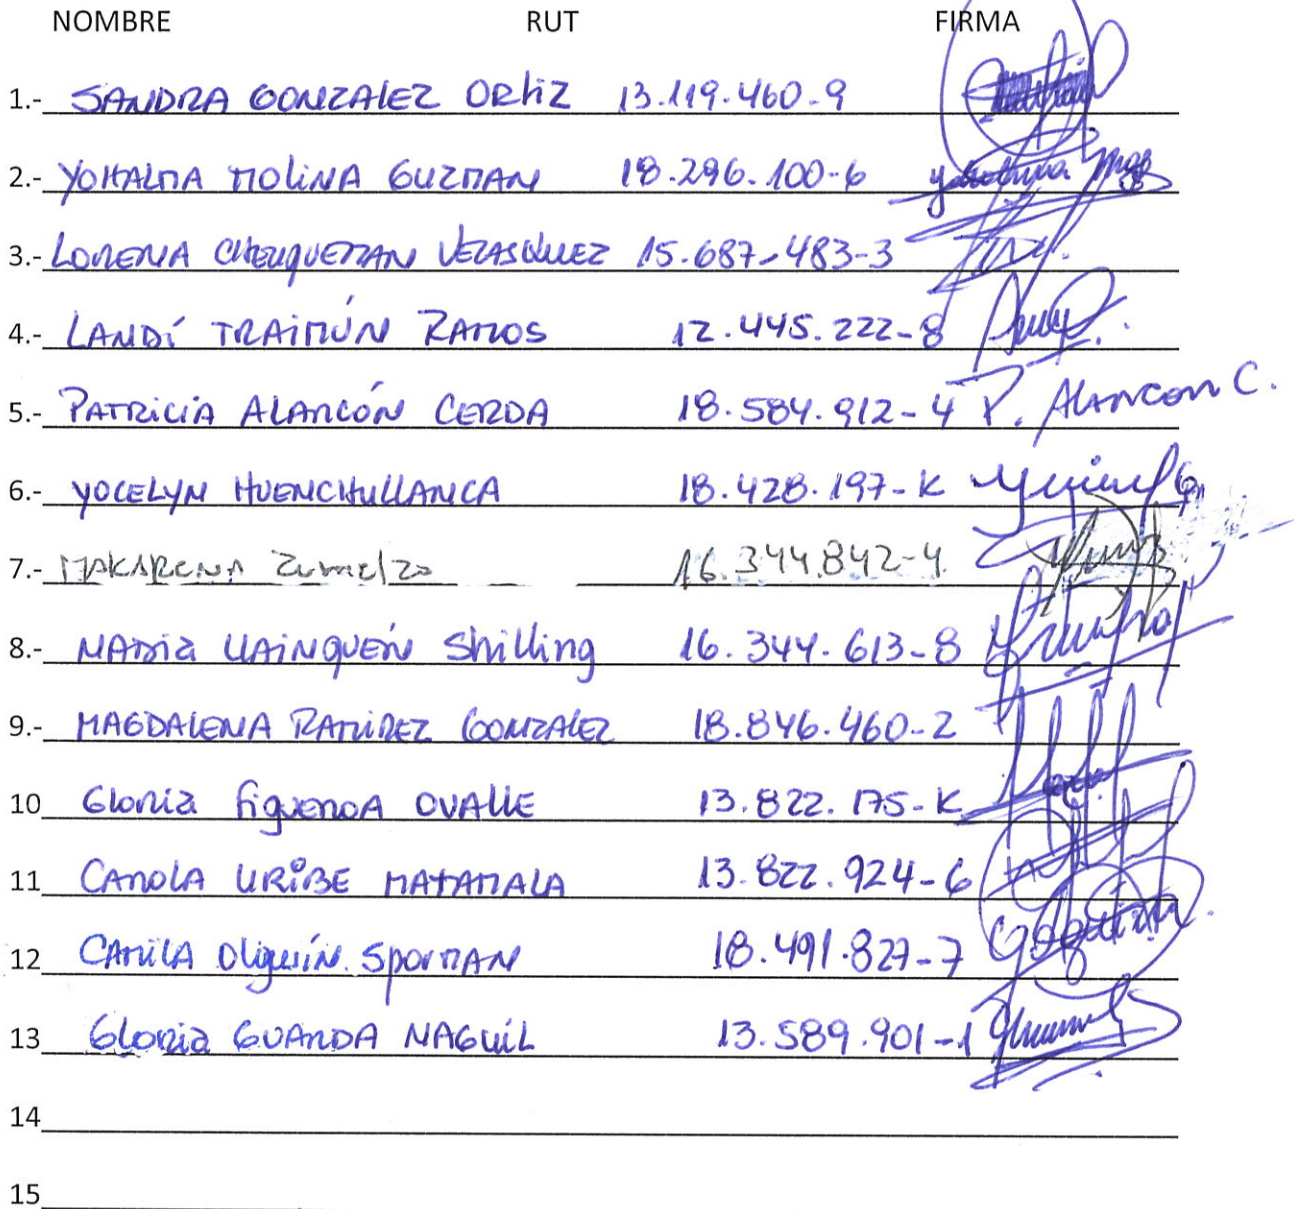 NOMBRE RUT FIRMA
1.- SANDRA GONZALEZ ORTIZ 13.119.460-9
2.- YOHALMA MOLINA GUZMAN 18.296.100-6
3.- LORENA CHEUQUEMAN VELASQUEZ 15.687-483-3
4.- LANDÍ TRAIMÚN RAMOS 12.445.222-8
5.- PATRICIA ALARCÓN CERDA 18.584.912-4 P. Alarcon C.
6.- YOCELYN HUENCHULLANCA 18.428.197-K
7.- MAKARENA Zumelzo 16.344.842-4
8.- MARIA LLAINQUEN Shilling 16.344.613-8
9.- MAGDALENA RAMIREZ GONZALEZ 18.846.460-2
10 Gloria figueroa OVALLE 13.822.175-K
11 CAROLA URIBE MATAMALA 13.822.924-6
12 CAMILA Olguín SporMAN 18.491.827-7
13 Gloria GUARDA NAGUIL 13.589.901-1
14
15